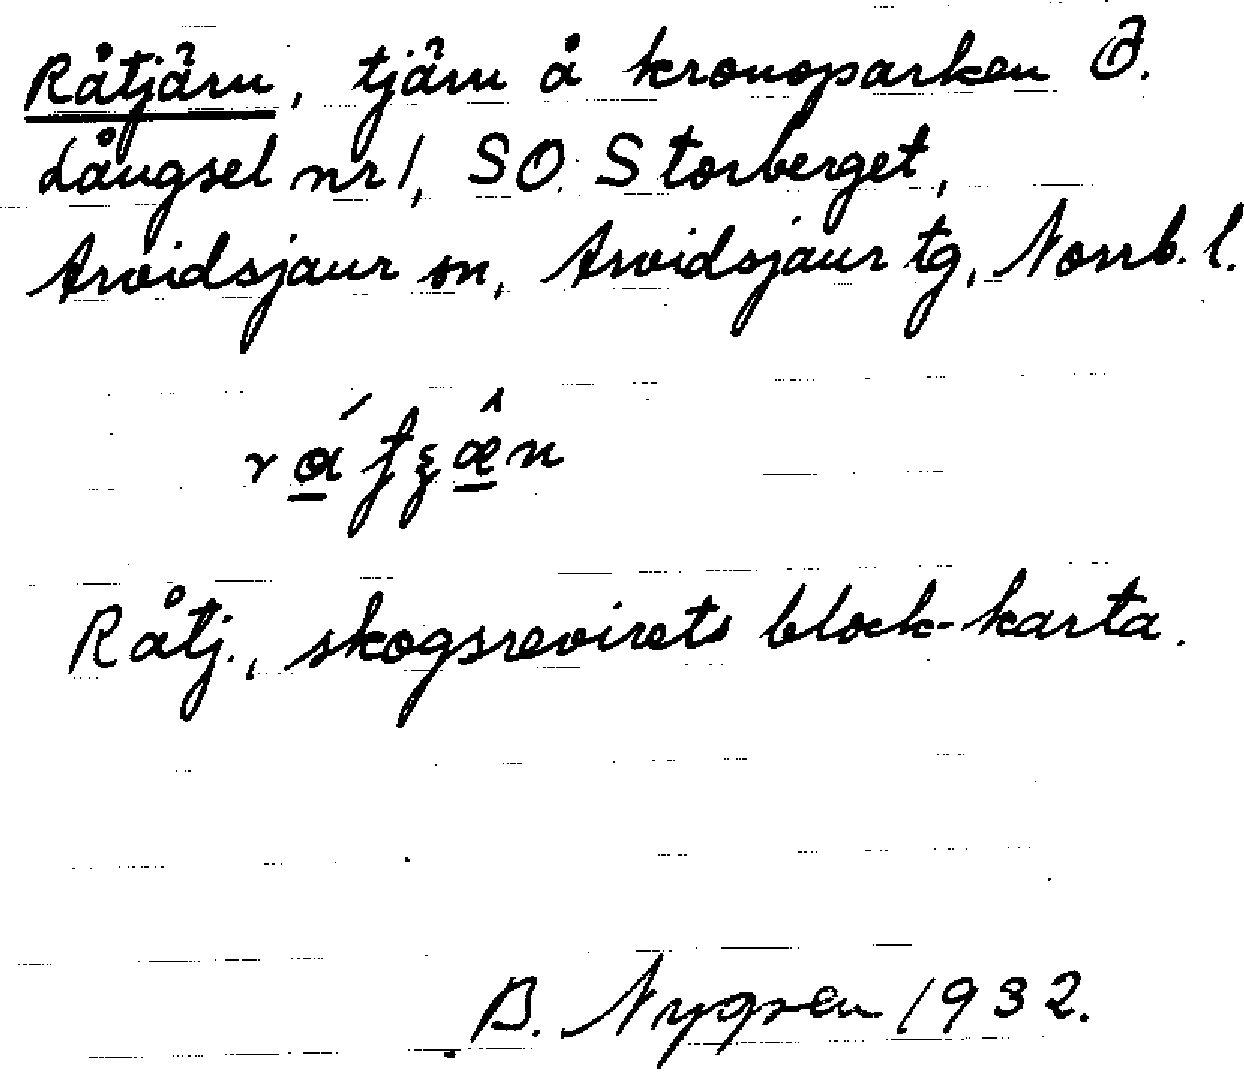 Råtjärn, tjärn å kronoparken Ö.
Långsel nr 1, SO. Storberget,
Arvidsjaur sn, Arvidsjaur tg, Norrb. l.
Råtj., skogsrevirets block-karta.
B. Nygren 1932.